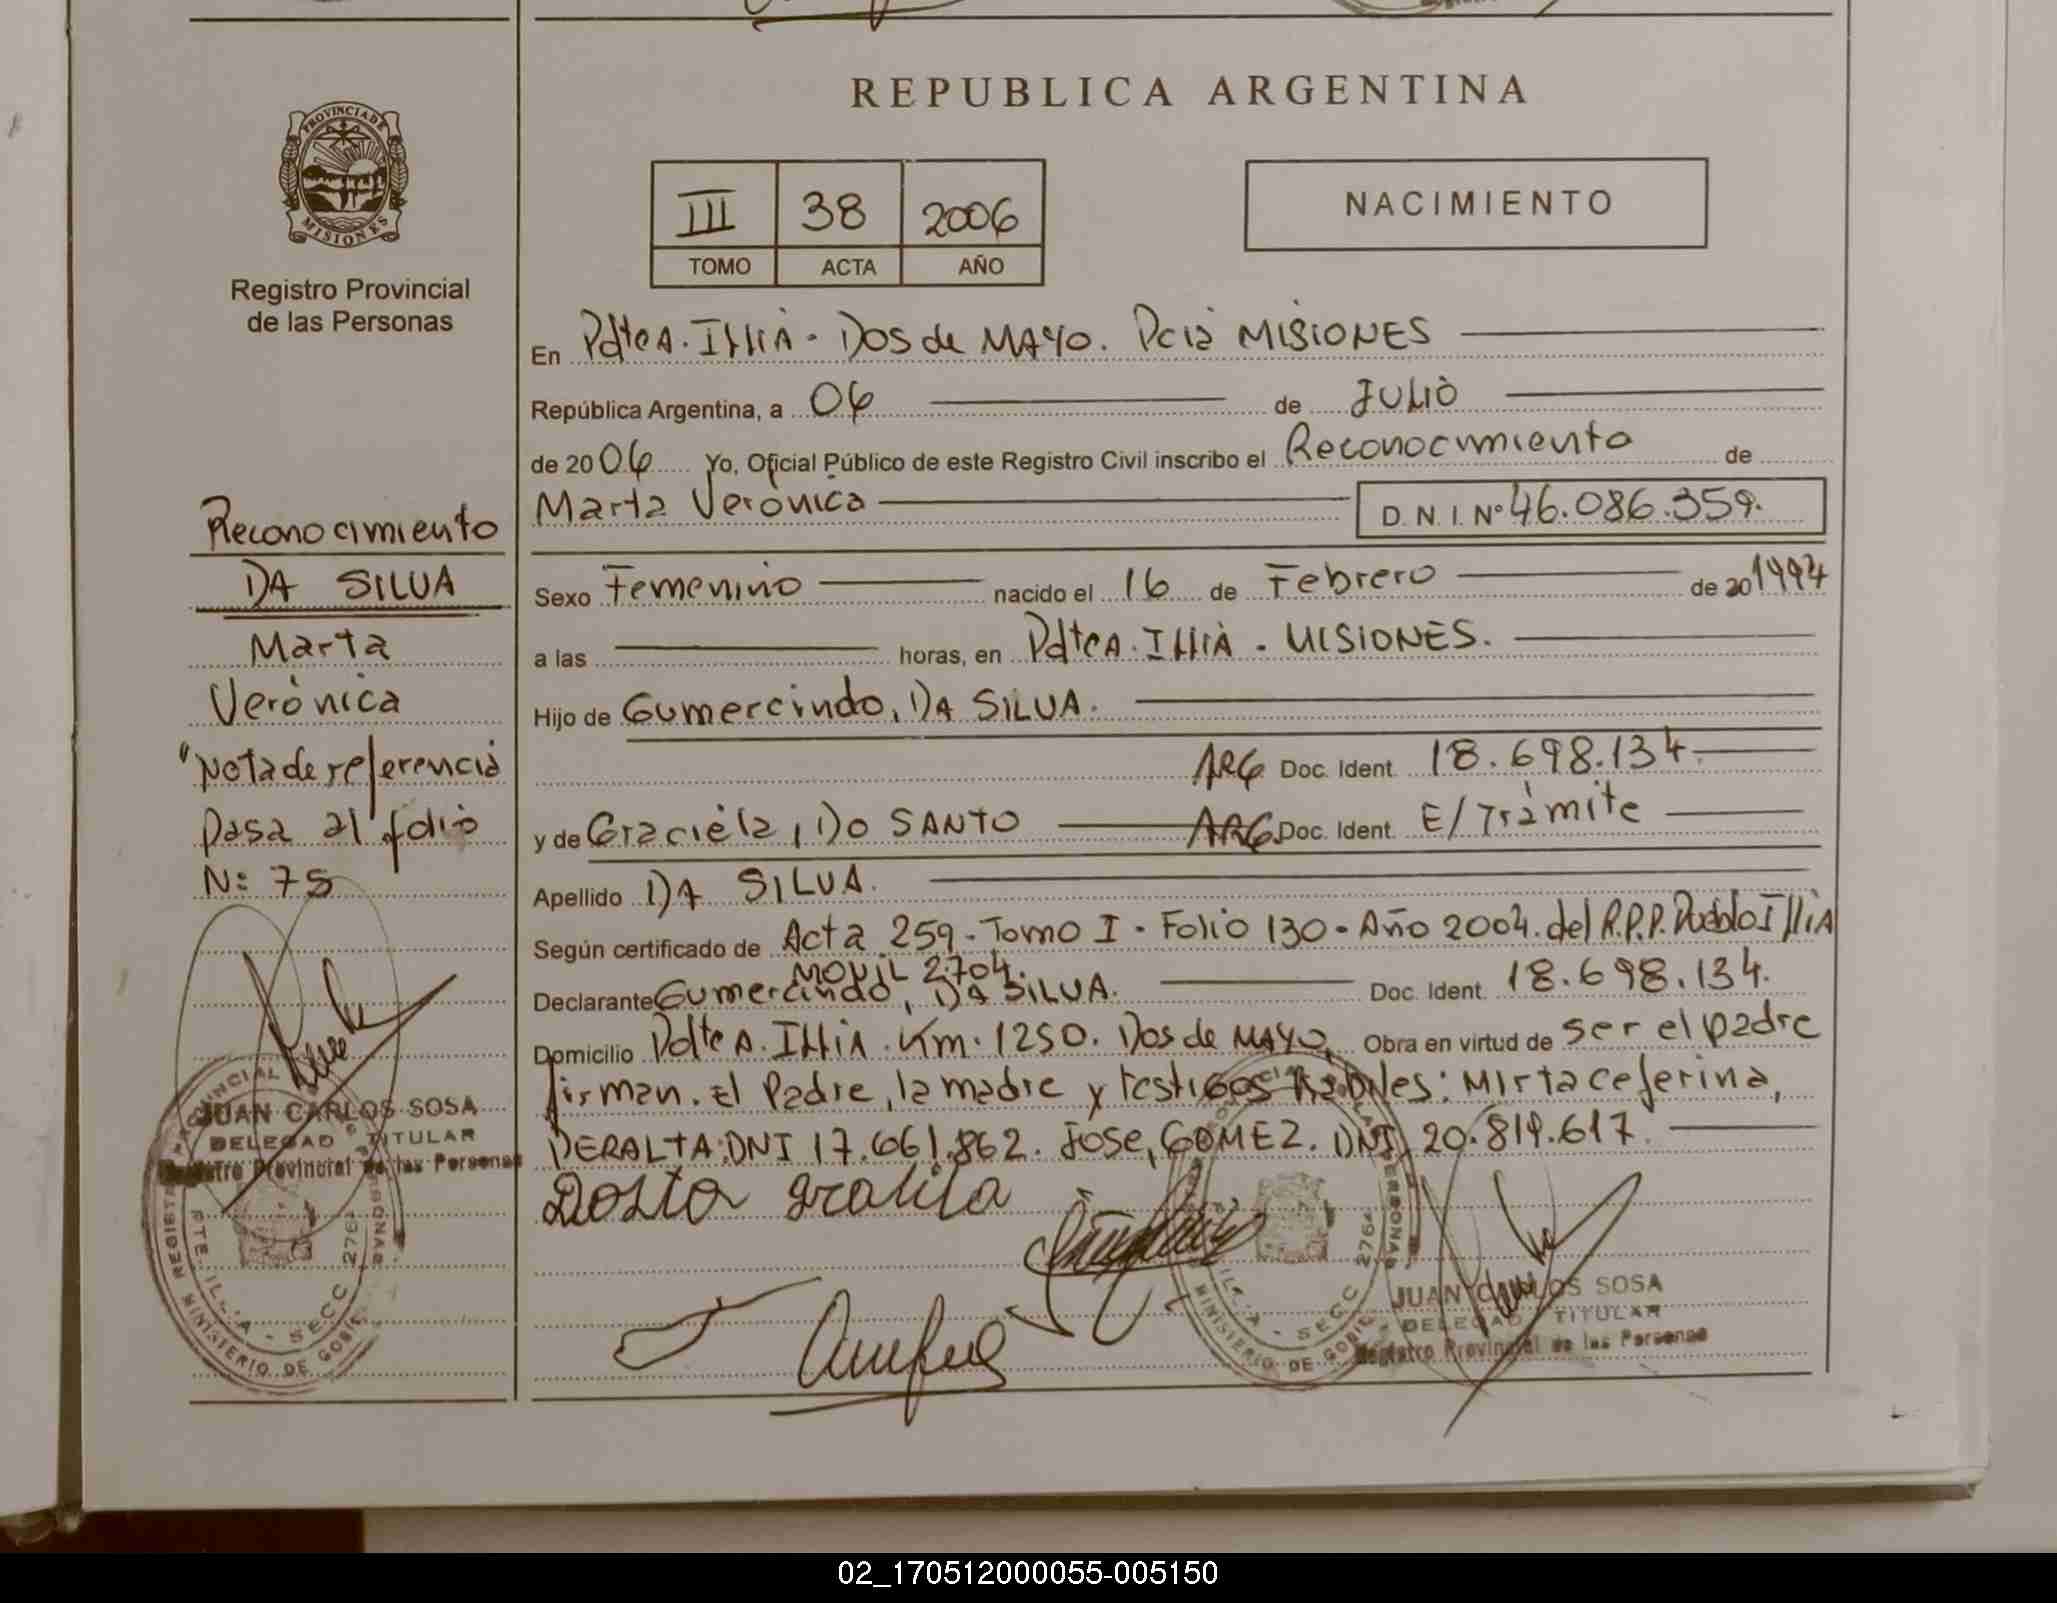 REPUBLICA ARGENTINA
PROVINCIA DE
MISIONES
Registro Provincial
de las Personas
III 38 2006
TOMO ACTA AÑO
NACIMIENTO
En Pdte A. Illià - Dos de MAYO. Pcia MISIONES
República Argentina, a 06 de JULIO
de 2006 Yo, Oficial Público de este Registro Civil inscribo el Reconocimiento de
Marta Verónica D.N.I. Nº 46.086.359.
Sexo Femenino nacido el 16 de Febrero de 20 1994
a las horas, en Pdte A. Illià - MISIONES.
Hijo de Gumercindo, DA SILVA.
ARG Doc. Ident. 18.698.134
y de Graciela, DO SANTO ARG. Doc. Ident. E/Tràmite
Apellido DA SILVA.
Según certificado de Acta 259 - Tomo I - Folio 130 - Año 2004. del R.P.P. Pueblo Illia
MOVIL 2704.
Declarante Gumercindo, DA SILVA. Doc. Ident. 18.698.134.
Domicilio Pdte A. Illia. Km. 1250. Dos de MAYO, Obra en virtud de ser el padre
firman. El Padre, la madre y testigos habiles: Mirta ceferina,
PERALTA: DNI 17.661.862. Jose, GOMEZ. DNI 20.819.617.
Reconocimiento
DA SILVA
Marta
Verónica
"Nota de referencia
Pasa al folio
N: 75
JUAN CARLOS SOSA
DELEGADO TITULAR
Registro Provincial de las Personas
REGISTRO PROVINCIAL DE LAS PERSONAS
MINISTERIO DE GOBIERNO
SECC 276
JUAN CARLOS SOSA
DELEGADO TITULAR
Registro Provincial de las Personas
MINISTERIO DE GOBIERNO
SECC 276
02_170512000055-005150